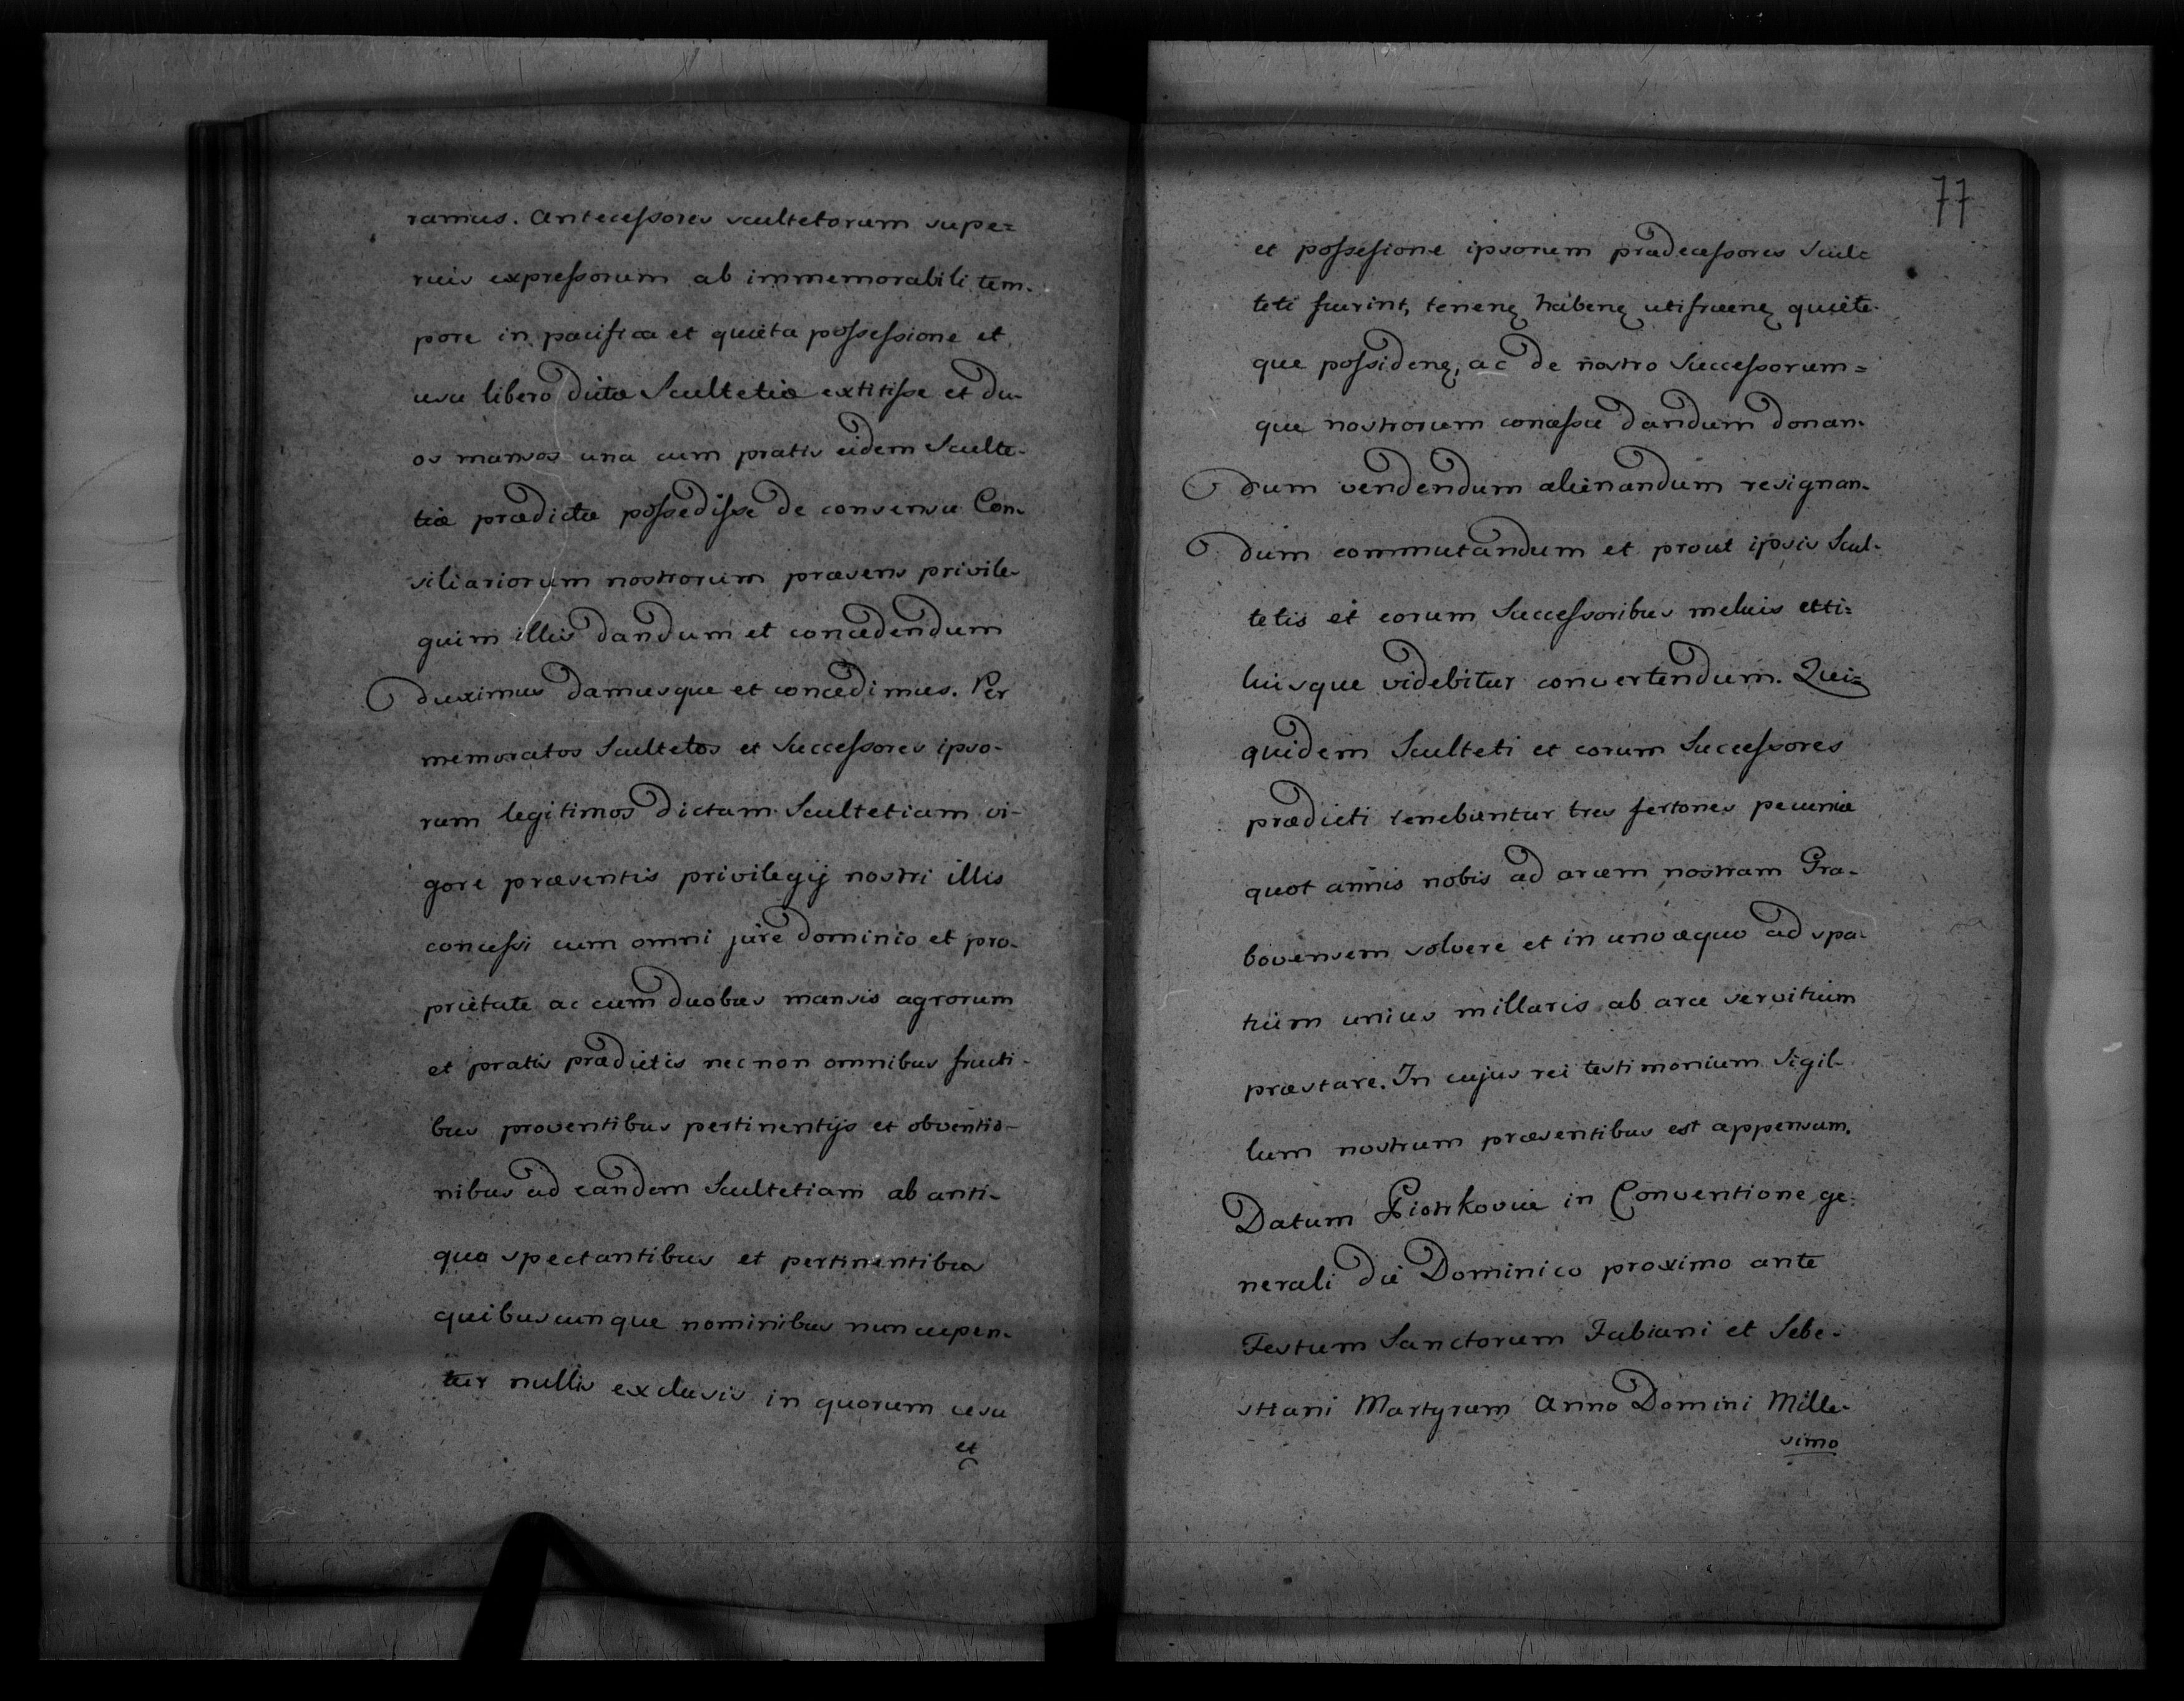 ramus. Antecessores scultetorum supe=
rius expressorum ab immemorabili tem-
pore in pacifica et quieta possessione et
usu libero dictæ Scultetiæ extitisse et du-
os mansos una cum pratis eidem Sculte-
tiæ prædictæ possedisse de consensu Con-
siliariorum nostrorum præsens privile-
guim illis dandum et concedendum
duximus damusque et concedimus. Per
memoratos Scultetos et Successores ipso-
rum legitimos dictam Scultetiam vi-
gore præsentis privilegij nostri illis
concessi cum omni jure dominio et pro-
prietate ac cum duobus mansis agrorum
et pratis prædictis nec non omnibus fructi-
bus proventibus pertinentijs et obventio-
nibus ad eandem Scultetiam ab anti-
quo spectantibus et pertinentibus
quibuscunque nominibus nuncupen-
tur nullis exclusis in quorum usu
et
77
et possesione ipsorum prædecessores Scul=
teti fuerint, tenenꝫ habenꝫ utifruenꝫ quiete-
que possidenꝫ, ac de nostro Successorum=
que nostrorum consessu dandum donan-
dum vendendum alienandum resignan-
dum commutandum et prout ipsis Scul-
tetis et eorum Successoribus melius etti=
liusque videbitur convertendum. Qui=
quidem Sculteti et eorum Successores
prædicti tenebuntur tres fertones pecuniæ
quot annis nobis ad arcem nostram Gra-
bovensem solvere et in uno æquo ad spa-
tium unius millaris ab arce servitium
præstare. In cujus rei testimonium Sigil-
lum nostrum præsentibus est appensum.
Datum Piotrkoviæ in Conventione ge-
nerali die Dominico proximo ante
Festum Sanctorum Fabiani et Seba-
stiani Martyrum Anno Domini Mille-
simo